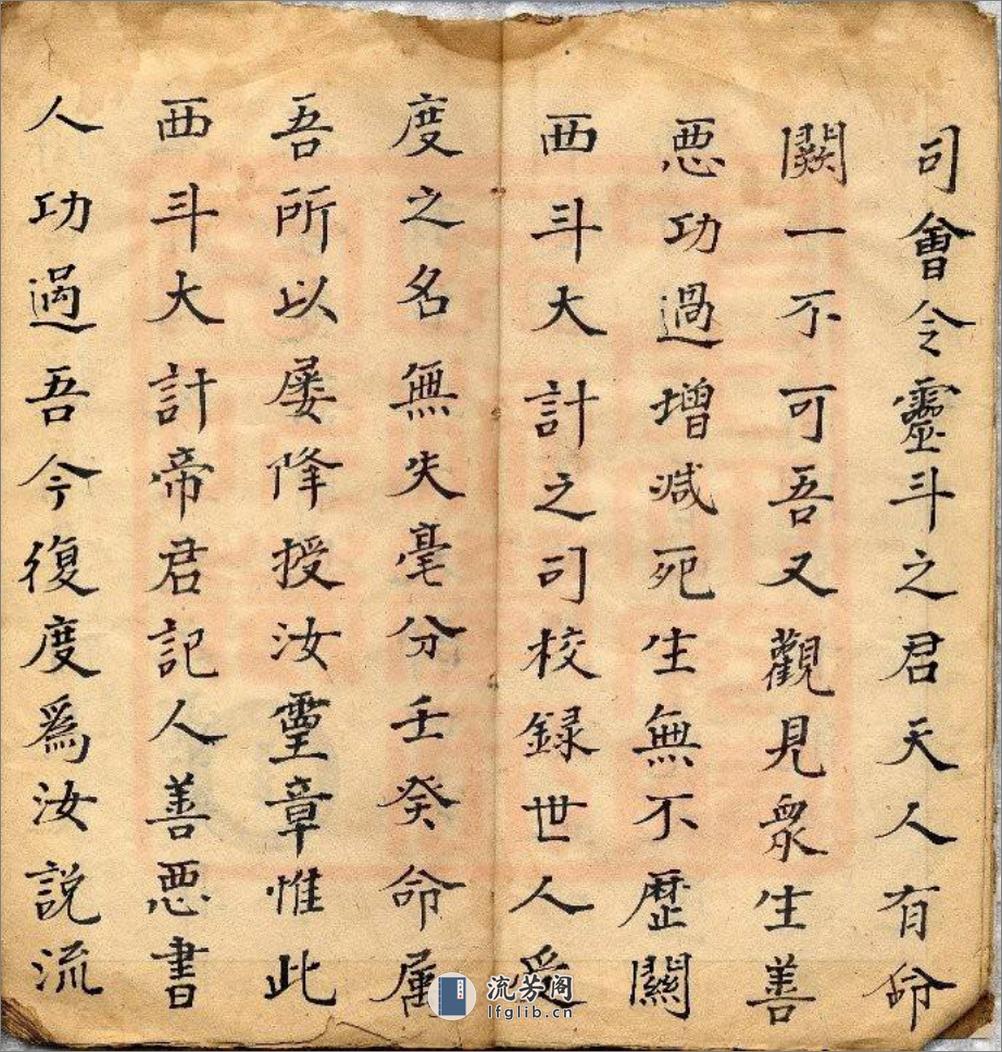 司會令靈斗之君天人有命
闕一不可吾又觀見衆生善
惡功過增減死生無不歷關
西斗大計之司校録世人受
度之名無失毫分壬癸命屬
吾所以屡降授汝靈章惟此
西斗大計帝君記人善惡書
人功過吾今復度爲汝説流
流芳阁
lfglib.cn